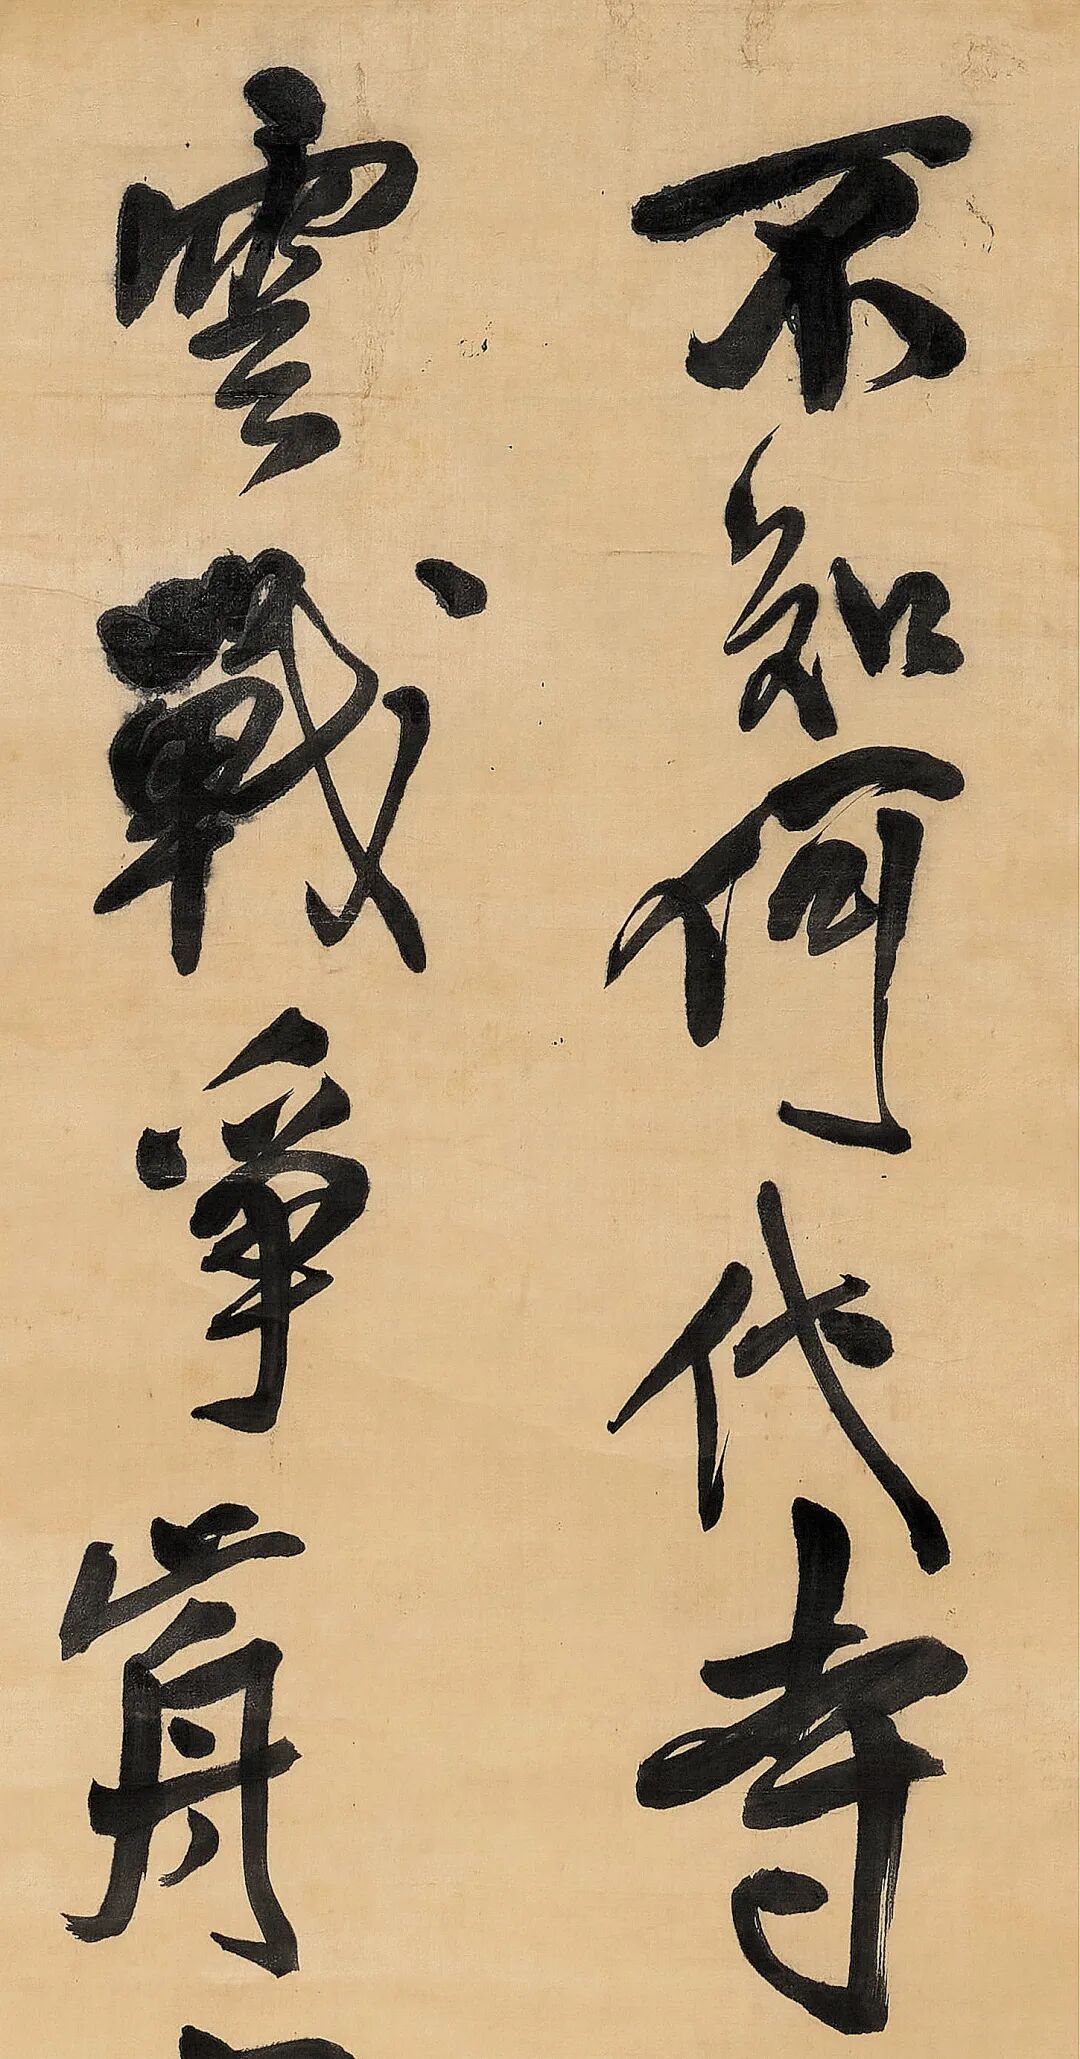 不知何代寺
雲戰爭歬